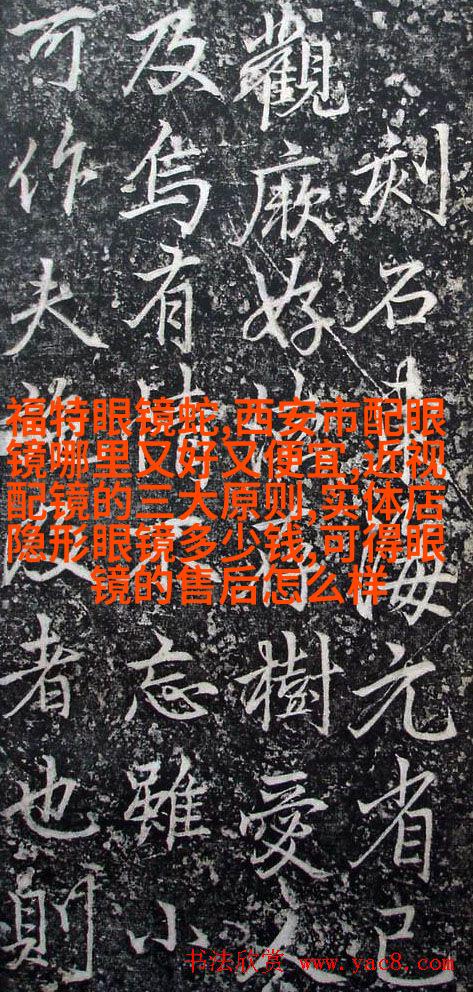 刻石海元省己
觀厥好樹愛
及焉有忘雖小
可作夫者也則
福特眼镜蛇,西安市配眼
镜哪里又好又便宜,近视
配镜的三大原则,实体店
隐形眼镜多少钱,可得眼
镜的售后怎么样
书法欣赏 www.yac8.com